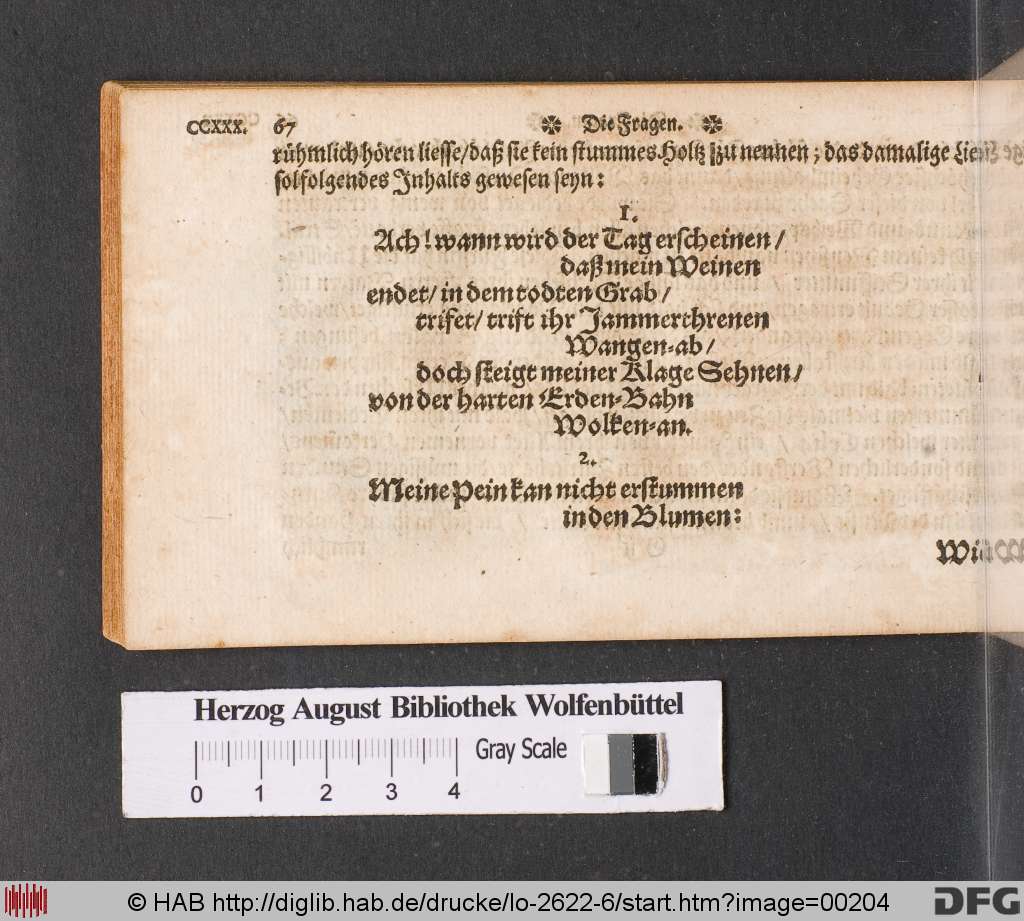 CCXXX. 67 ✼ Die Fragen. ✼
rühmlich hören liesse/daß sie kein stummes Holtz zu nennen; das damalige Lied
sol folgendes Inhalts gewesen seyn:
1.
Ach! wann wird der Tag erscheinen/
daß mein Weinen
endet/ in dem todten Grab/
trifet/ trift ihr Jammerthrenen
Wangen-ab/
doch steigt meiner Klage Sehnen/
von der harten Erden-Bahn
Wolken-an.
2.
Meine Pein kan nicht erstummen
in den Blumen:
Herzog August Bibliothek Wolfenbüttel
Gray Scale
0 1 2 3 4
© HAB http://diglib.hab.de/drucke/lo-2622-6/start.htm?image=00204
DFG